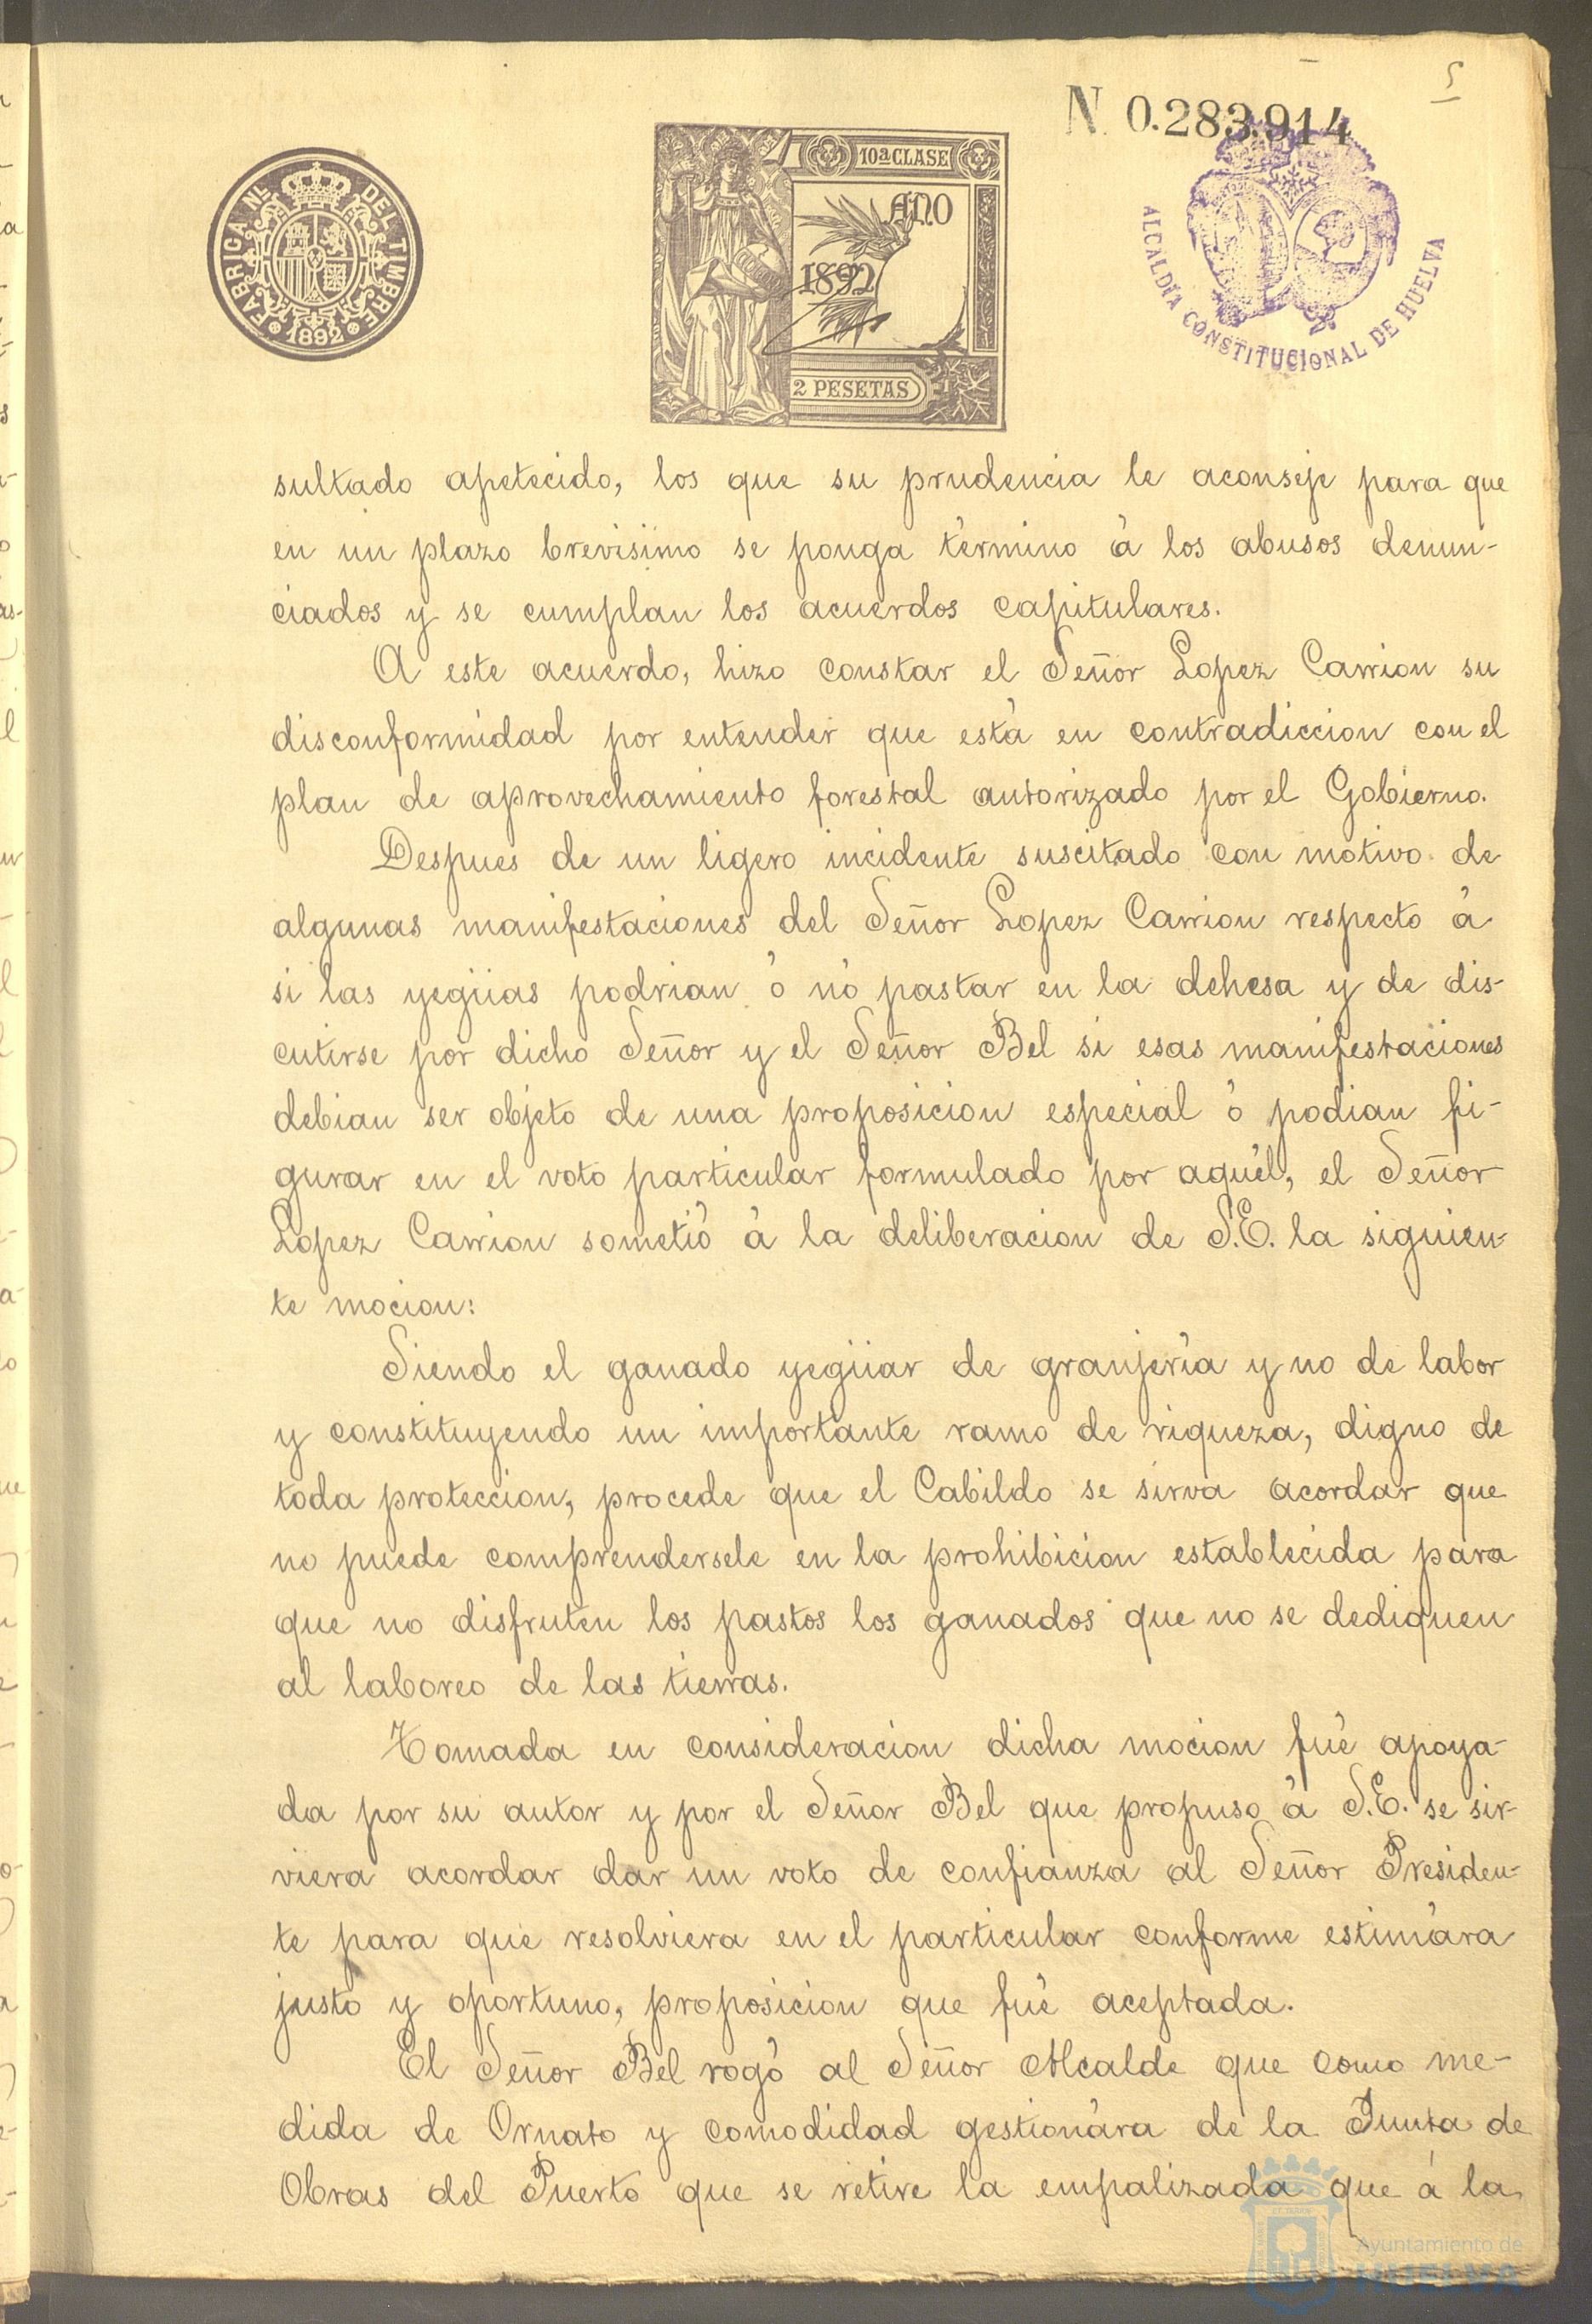 5
N. 0.283.914
FABRICA NL. DEL TIMBRE
1892
10ª CLASE
AÑO
1892
2 PESETAS
ALCALDÍA CONSTITUCIONAL DE HUELVA
sultado apetecido, los que su prudencia le aconseje para que
en un plazo brevisimo se ponga término á los abusos denun-
ciados y se cumplan los acuerdos capitulares.
A este acuerdo, hizo constar el Señor Lopez Carrion su
disconformidad por entender que está en contradiccion con el
plan de aprovechamiento forestal autorizado por el Gobierno.
Despues de un ligero incidente suscitado con motivo de
algunas manifestaciones del Señor Lopez Carrion respecto á
si las yegüas podrian ó nó pastar en la dehesa y de dis-
cutirse por dicho Señor y el Señor Bel si esas manifestaciones
debian ser objeto de una proposicion especial ó podian fi-
gurar en el voto particular formulado por aquél, el Señor
Lopez Carrion sometió á la deliberacion de S.E. la siguien-
te mocion:
Siendo el ganado yegüar de granjería y no de labor
y constituyendo un importante ramo de riqueza, digno de
toda proteccion, procede que el Cabildo se sirva acordar que
no puede comprendersele en la prohibicion establecida para
que no disfruten los pastos los ganados que no se dediquen
al laboreo de las tierras.
Tomada en consideracion dicha mocion fué apoya-
da por su autor y por el Señor Bel que propuso á S.E. se sir-
viera acordar dar un voto de confianza al Señor Presiden-
te para que resolviera en el particular conforme estimára
justo y oportuno, proposicion que fué aceptada.
El Señor Bel rogó al Señor Alcalde que como me-
dida de Ornato y comodidad gestionára de la Junta de
Obras del Puerto que se retire la empalizada que á la
Ayuntamiento de
HUELVA